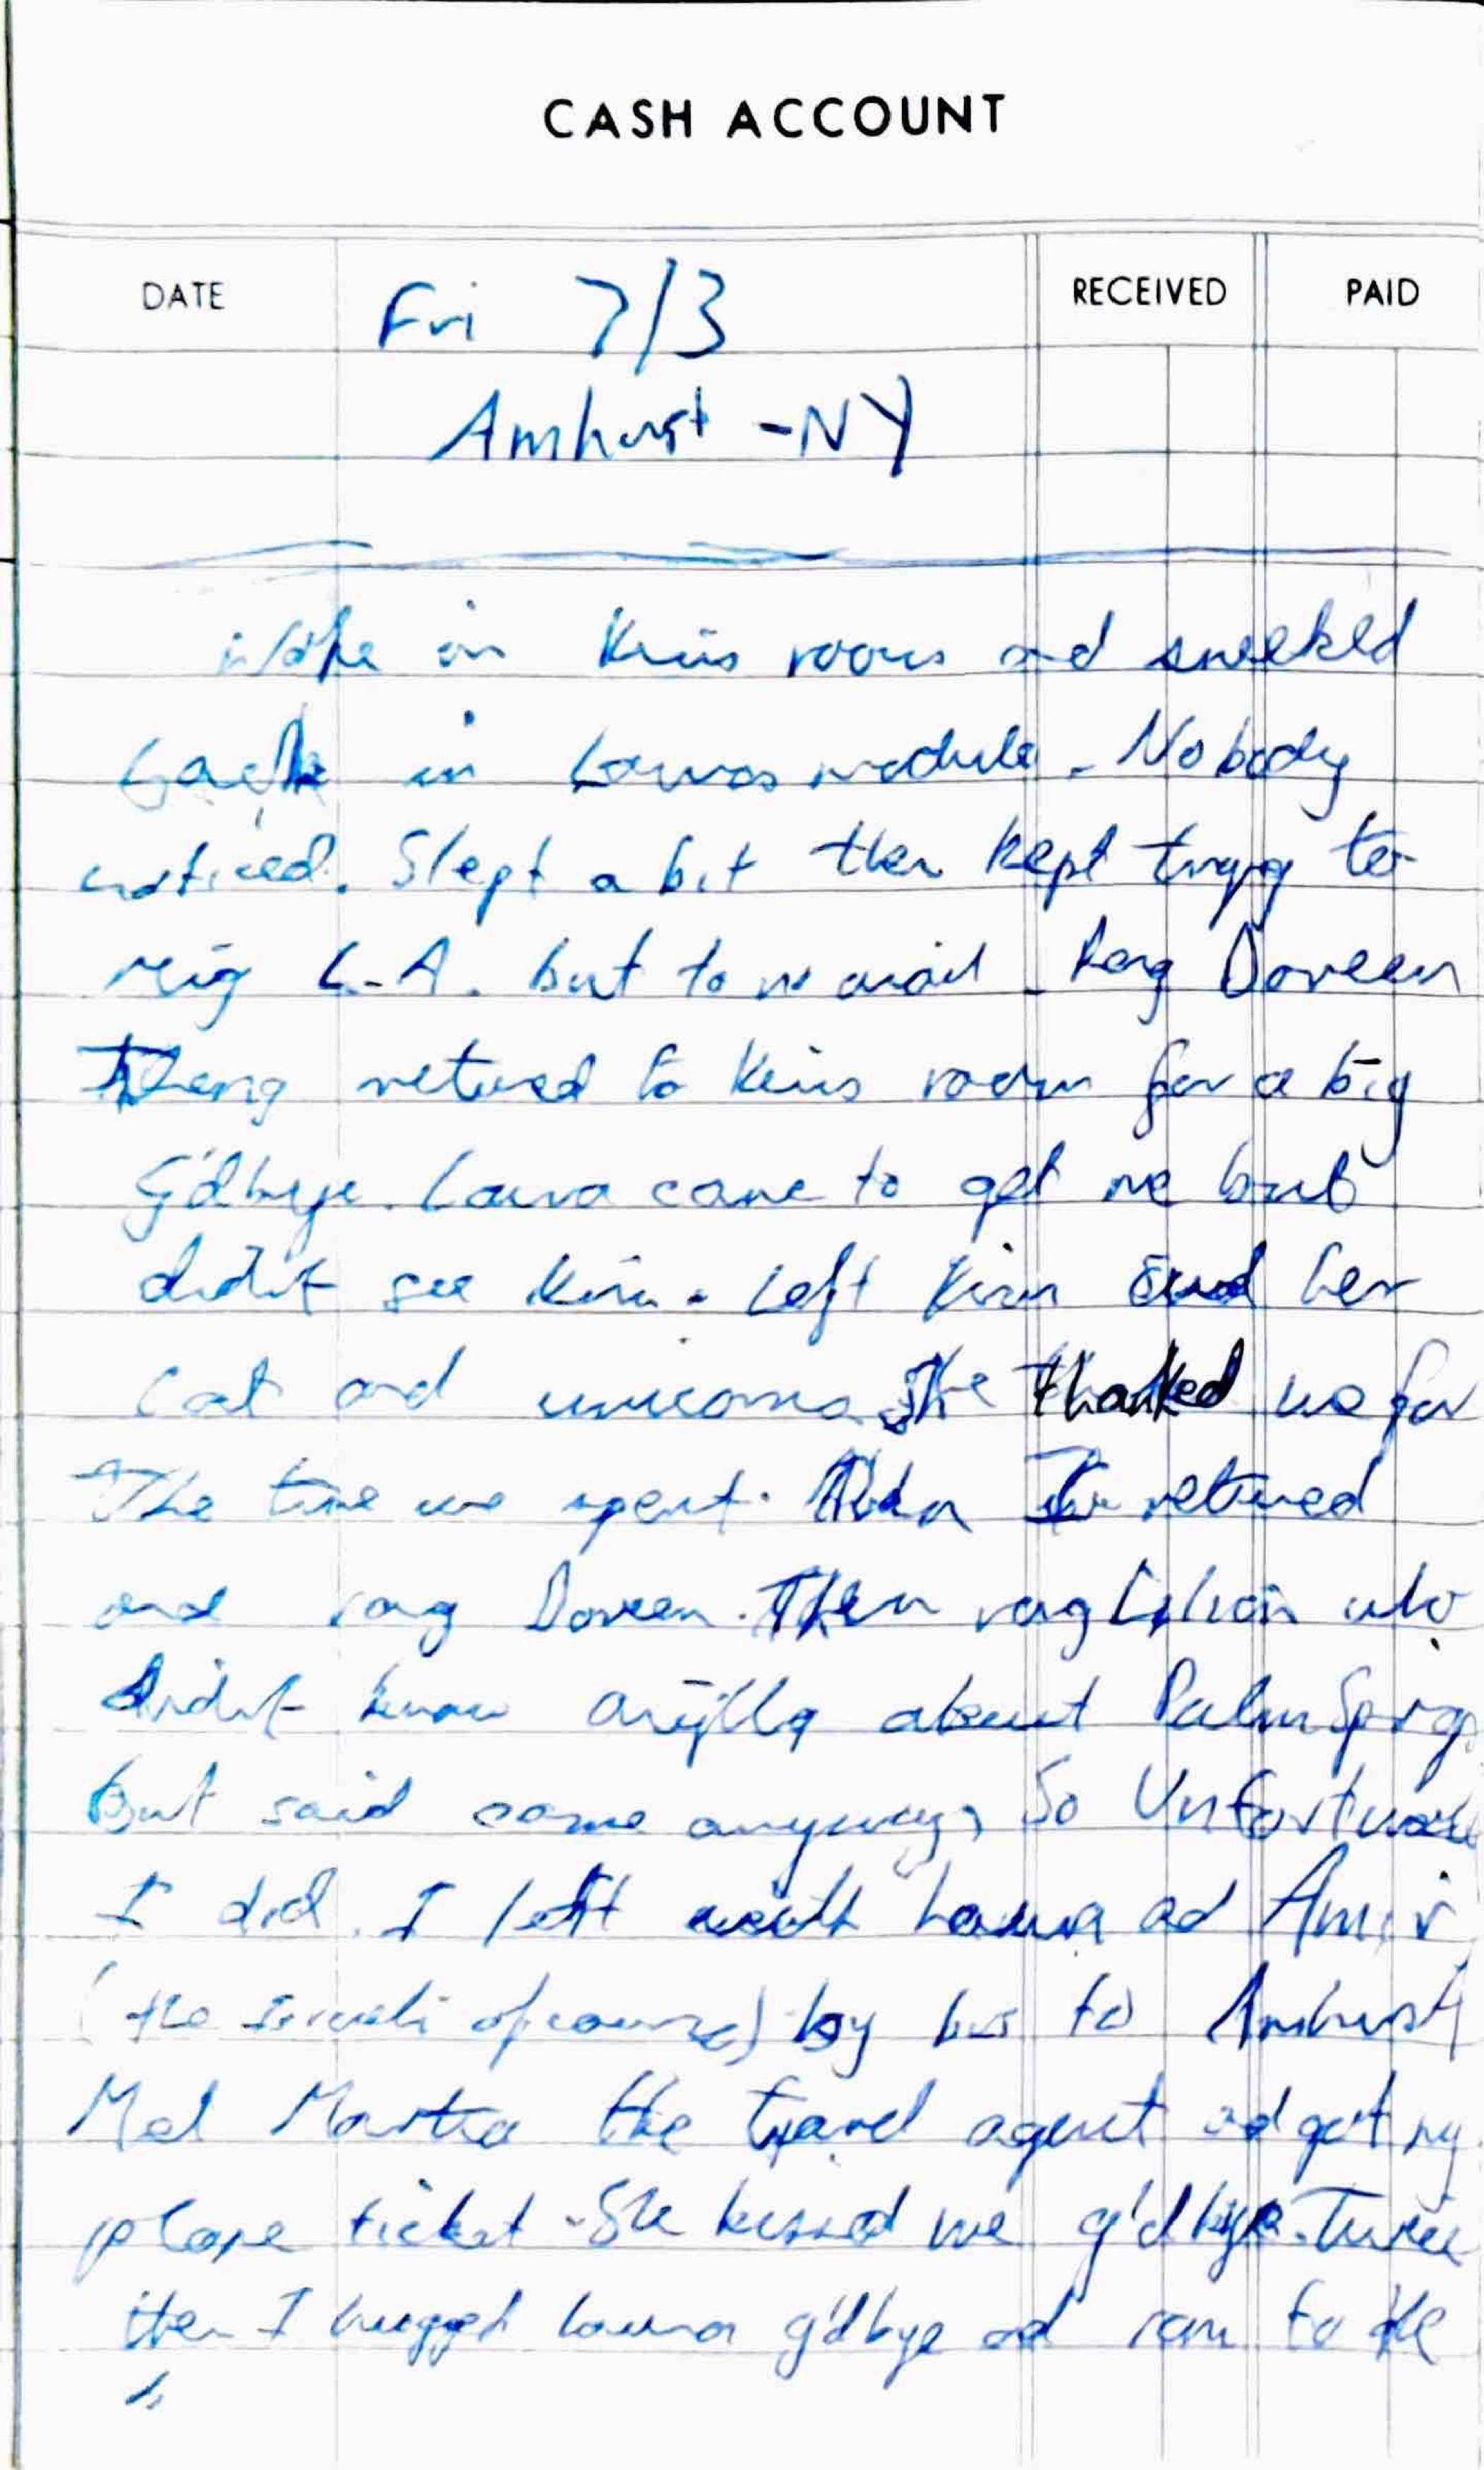 CASH ACCOUNT
DATE Fri 7/3 RECEIVED PAID
Amhurst - NY
Woke in Kims room and sneeked
back in Lauras module. Nobody
noticed. Slept a bit then kept trying to
ring L.A. but to no avail. Rang Doreen
returned to Kims room for a big
G'dbye. Laura came to get me but
didn't see Kim. Left Kim and her
Cat and unicorns. She thanked me for
The time we spent. returned
and rang Doreen. Then rang who
didnt know anything about Palm Springs
But said come anyway, So Unfortunate
I did. I left with Laura ad Amir
(the Israeli of course) by bus to Amhurst
Met Martha the travel agent ad got my
plane ticket. She kissed me g'dbye. Twice
then I hugged Laura g'dbye ad ran to the